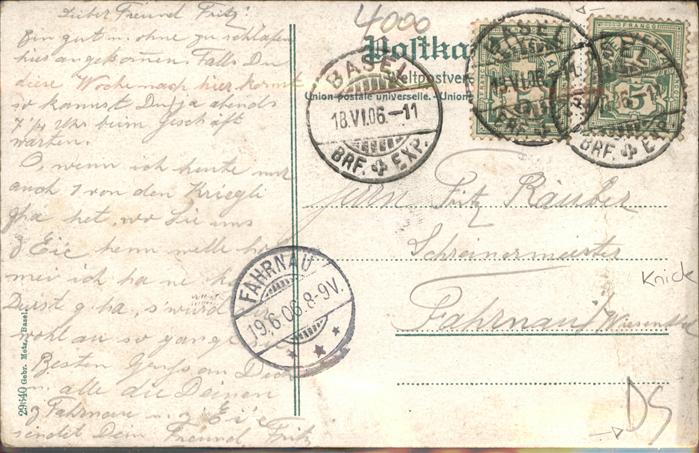 4000
Postka
Weltpostver
Union postale universelle. - Union
BASEL
18.VI.06.-11
BRF. EXP.
BASEL
18.VI.06.
BRF. EXP.
BASEL
06.-11
BRF. EXP.
5
Lieber Freund Fritz!
Bin gut u. ohne zu schlafen
hier angekommen. Falls Du
diese Woche nach hier kommst
so kannst Du ja abends
7 Uhr beim Geschäft
warten.
O, wenn ich heute nur
auch 1 von den Kriegli
gha het, wo Sie uns
z'Eic henn welle
mei ich ha ne
Durst g'ha, s'wurd
wohl au so gange
Besten Gruss an Dich
u. alle die Deinen
z'Fahrnau u. z'Eic
sendet Dein Freund Fritz
FAHRNAU
19.6.06.8-9V.
Herrn Fritz Räuber
Schreinermeister
Fahrnau/Wiesenthal
Knick
DS
29640 Gebr. Metz, Basel.